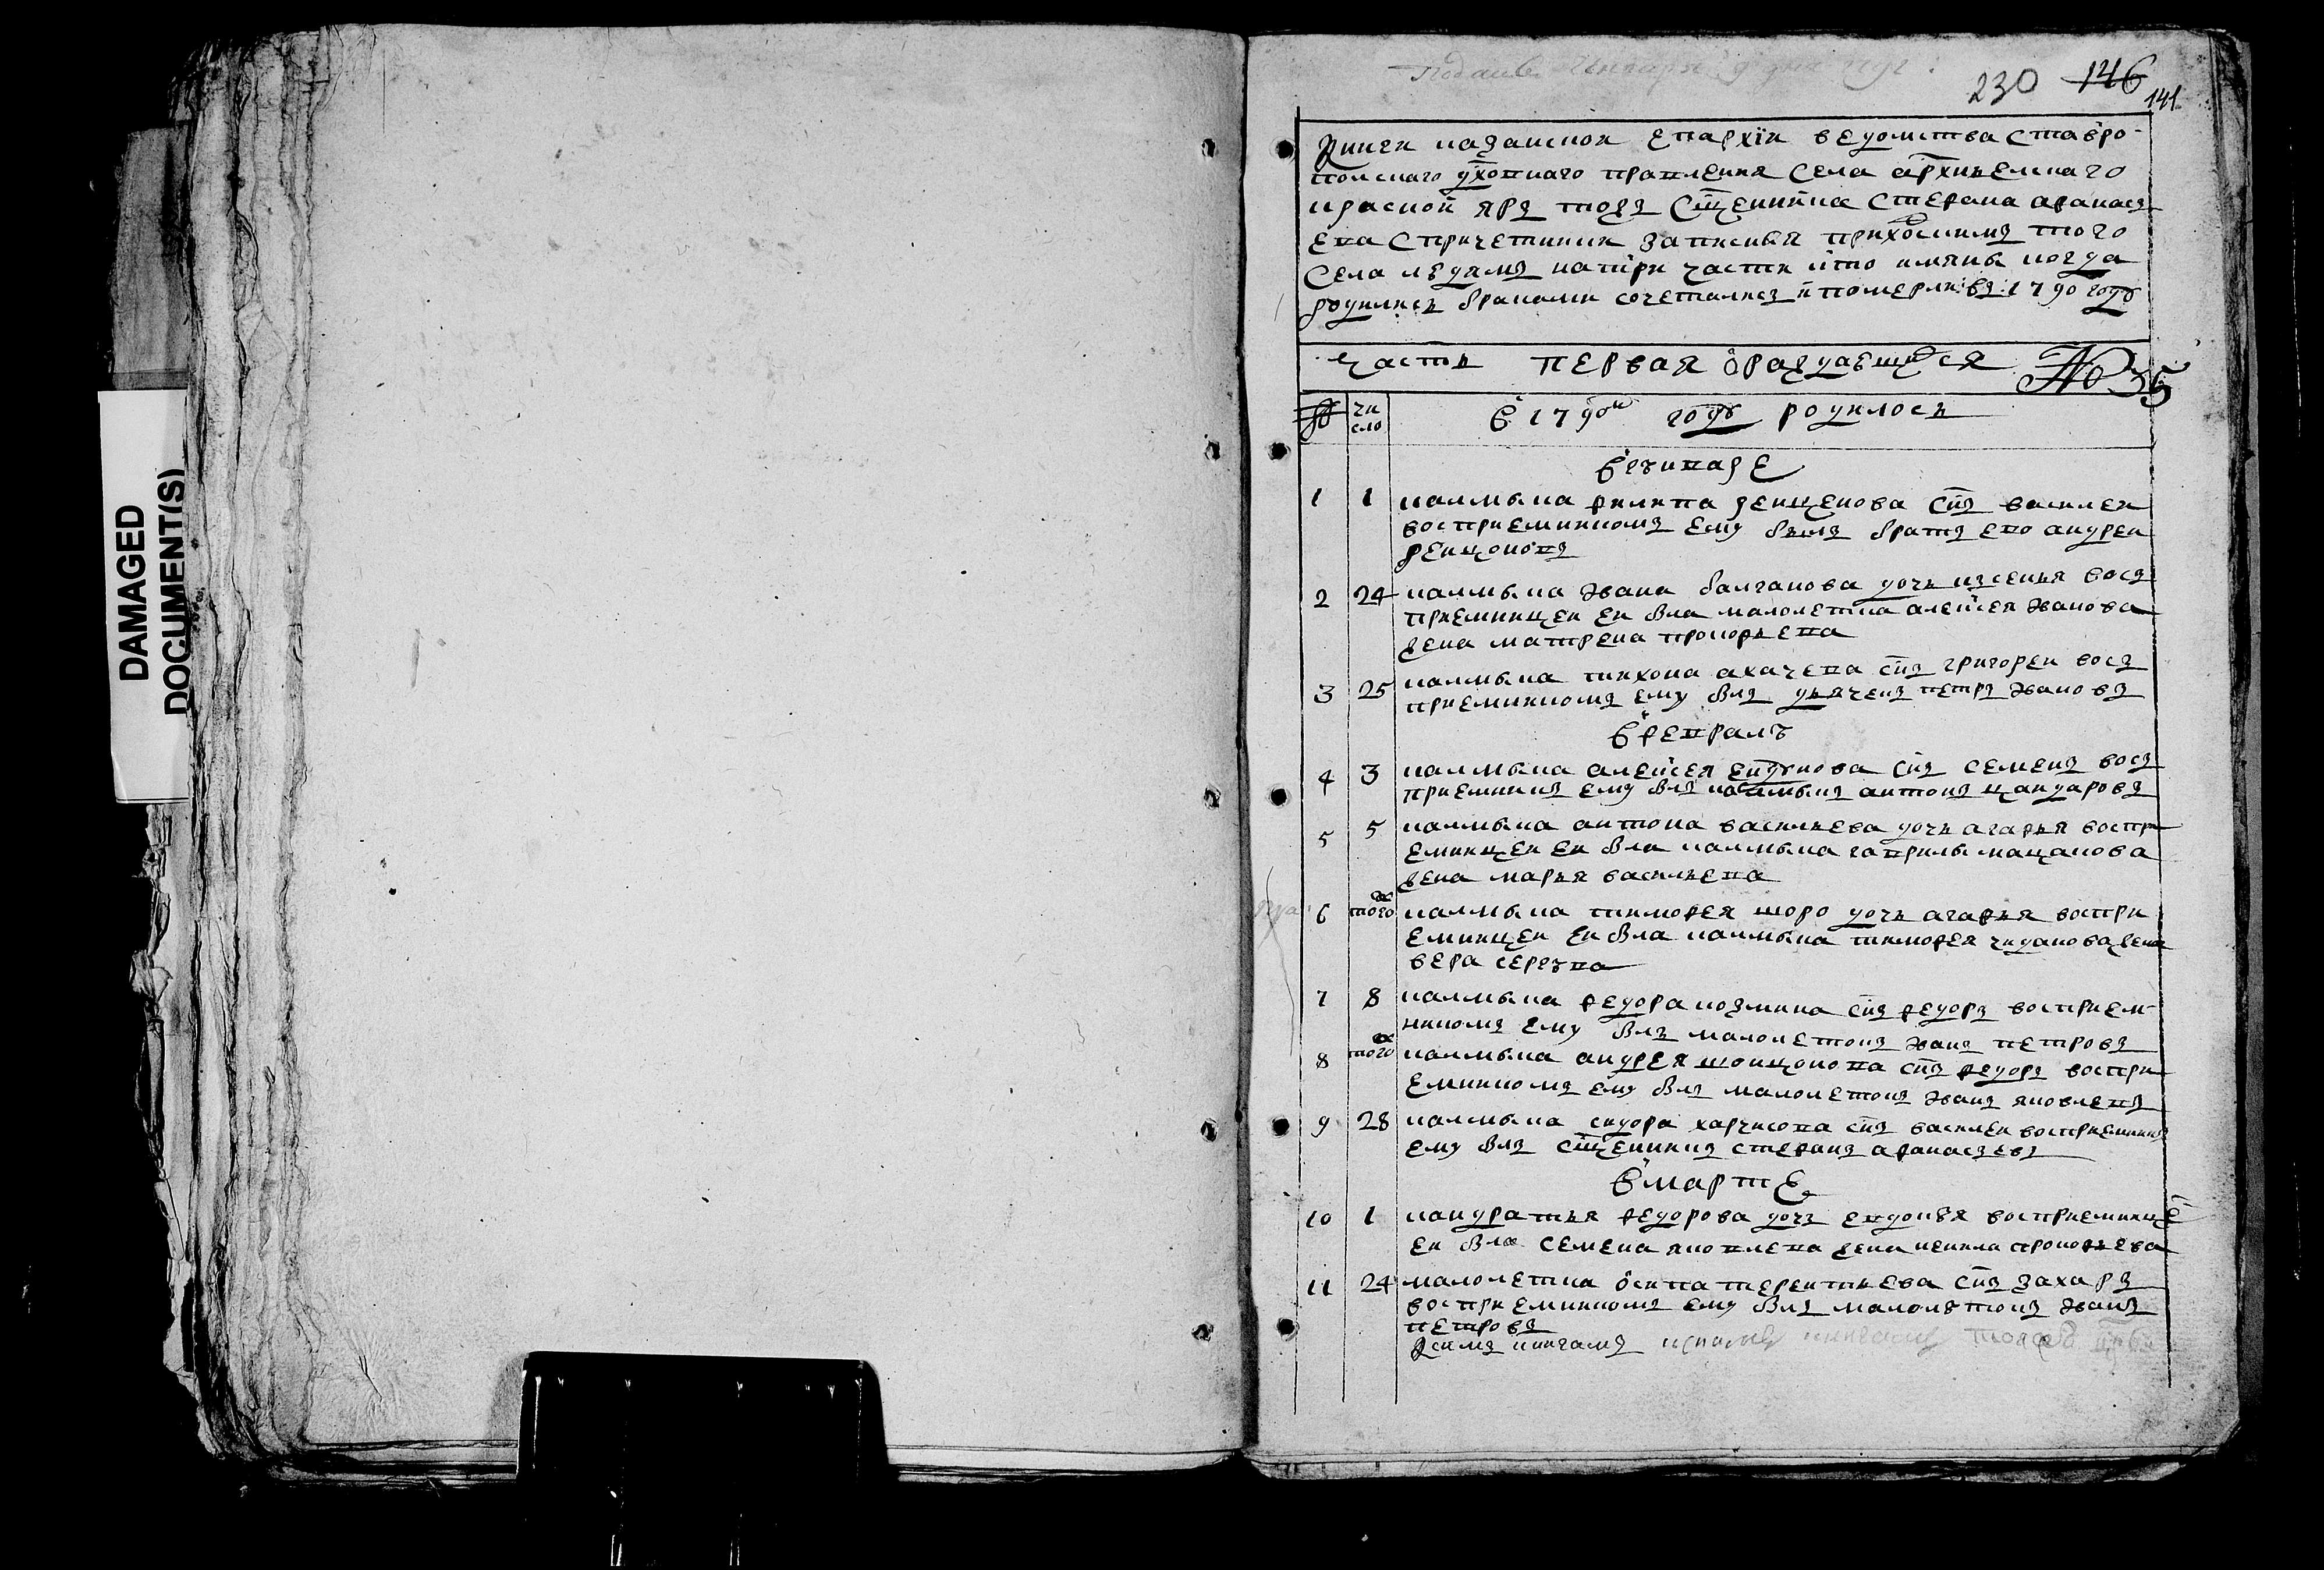 230 146
141
Книги казанской епархіи ведомства ставро-
полскаго дховнаго правления села архинелскаго
красной яръ тожъ сщенника стефана афанасъ
ева спричетники записныя прихоцкимъ того
села людямъ натри части кто имяны когда
родились браками сочеталисъ и померли въ 1790 году
часть первая о раждавшихся № 35
№ чи
сло
в 1790м году родилось
в генваре
1 1 калмыка филипа сын василей
восприемникомъ ему былъ братъ ево андрей
2 24 калмыка ивана балганова дочь ксенья восъ
приемницей ей бла малолетка алексея иванова
жена матрена прокофьева
3 25 калмыка тихона ахачева снъ григорей восъ
приемникомъ ему блъ дьячекъ петръ ивановъ
в феврале
4 3 калмыка алексея снъ семенъ восъ
приемникъ ему блъ калмыкъ антонъ цандаровъ
5 5 калмыка антона васильева дочь агафья воспри
емницей ей бла калмыка гаврилы мацакова
жена марья васильева
6 тогож калмыка тимофея шоро дочь агафья воспри
емницей ей бла калмыка тимофея чиданова жена
вера сергева
7 8 калмыка федора козмина снъ федоръ восприем-
никомъ ему блъ малолетокъ иванъ петровъ
8 тогож калмыка андрея снъ федоръ воспри
емникомъ ему блъ малолетокъ иванъ яковлевъ
9 28 калмыка сидора харчисова снъ василей восприемникъ
ему блъ сщенникъ стефанъ афанасъевъ
в марте
10 1 кандратья федорова дочь евдокея восприемнице
ей бла семена яковлева жена прокофьева
11 24 малолетка осипа терентьева снъ захаръ
восприемникомъ ему блъ малолетокъ иванъ
петровъ
Ксимъ книгамъ
DAMAGED
DOCUMENT(S)